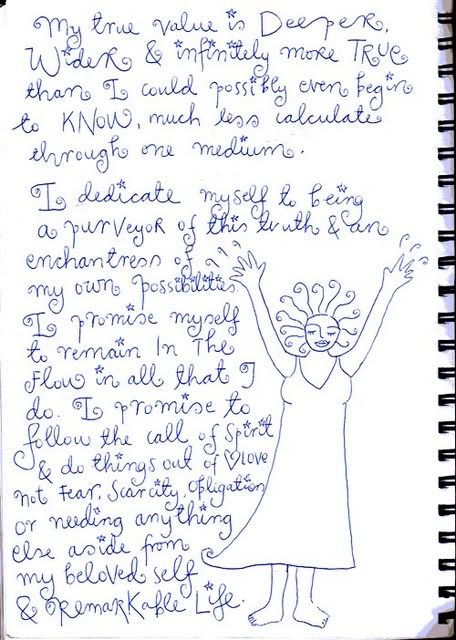 My true value is Deeper,
Wider & infinitely more TRUe
than I could possibly even begin
to KNOW, much less calculate
through one medium.
I dedicate myself to being
a purveyoR of this truth & an
enchantress of
my own possibilities.
I promise myself
to remain In The
Flow in all that I
do. I promise to
follow the call of Spirit
& do things out of ♡love
not Fear, Scarcity, Obligation
or needing anything
else aside from
my beloved self
& RemarKable Life.